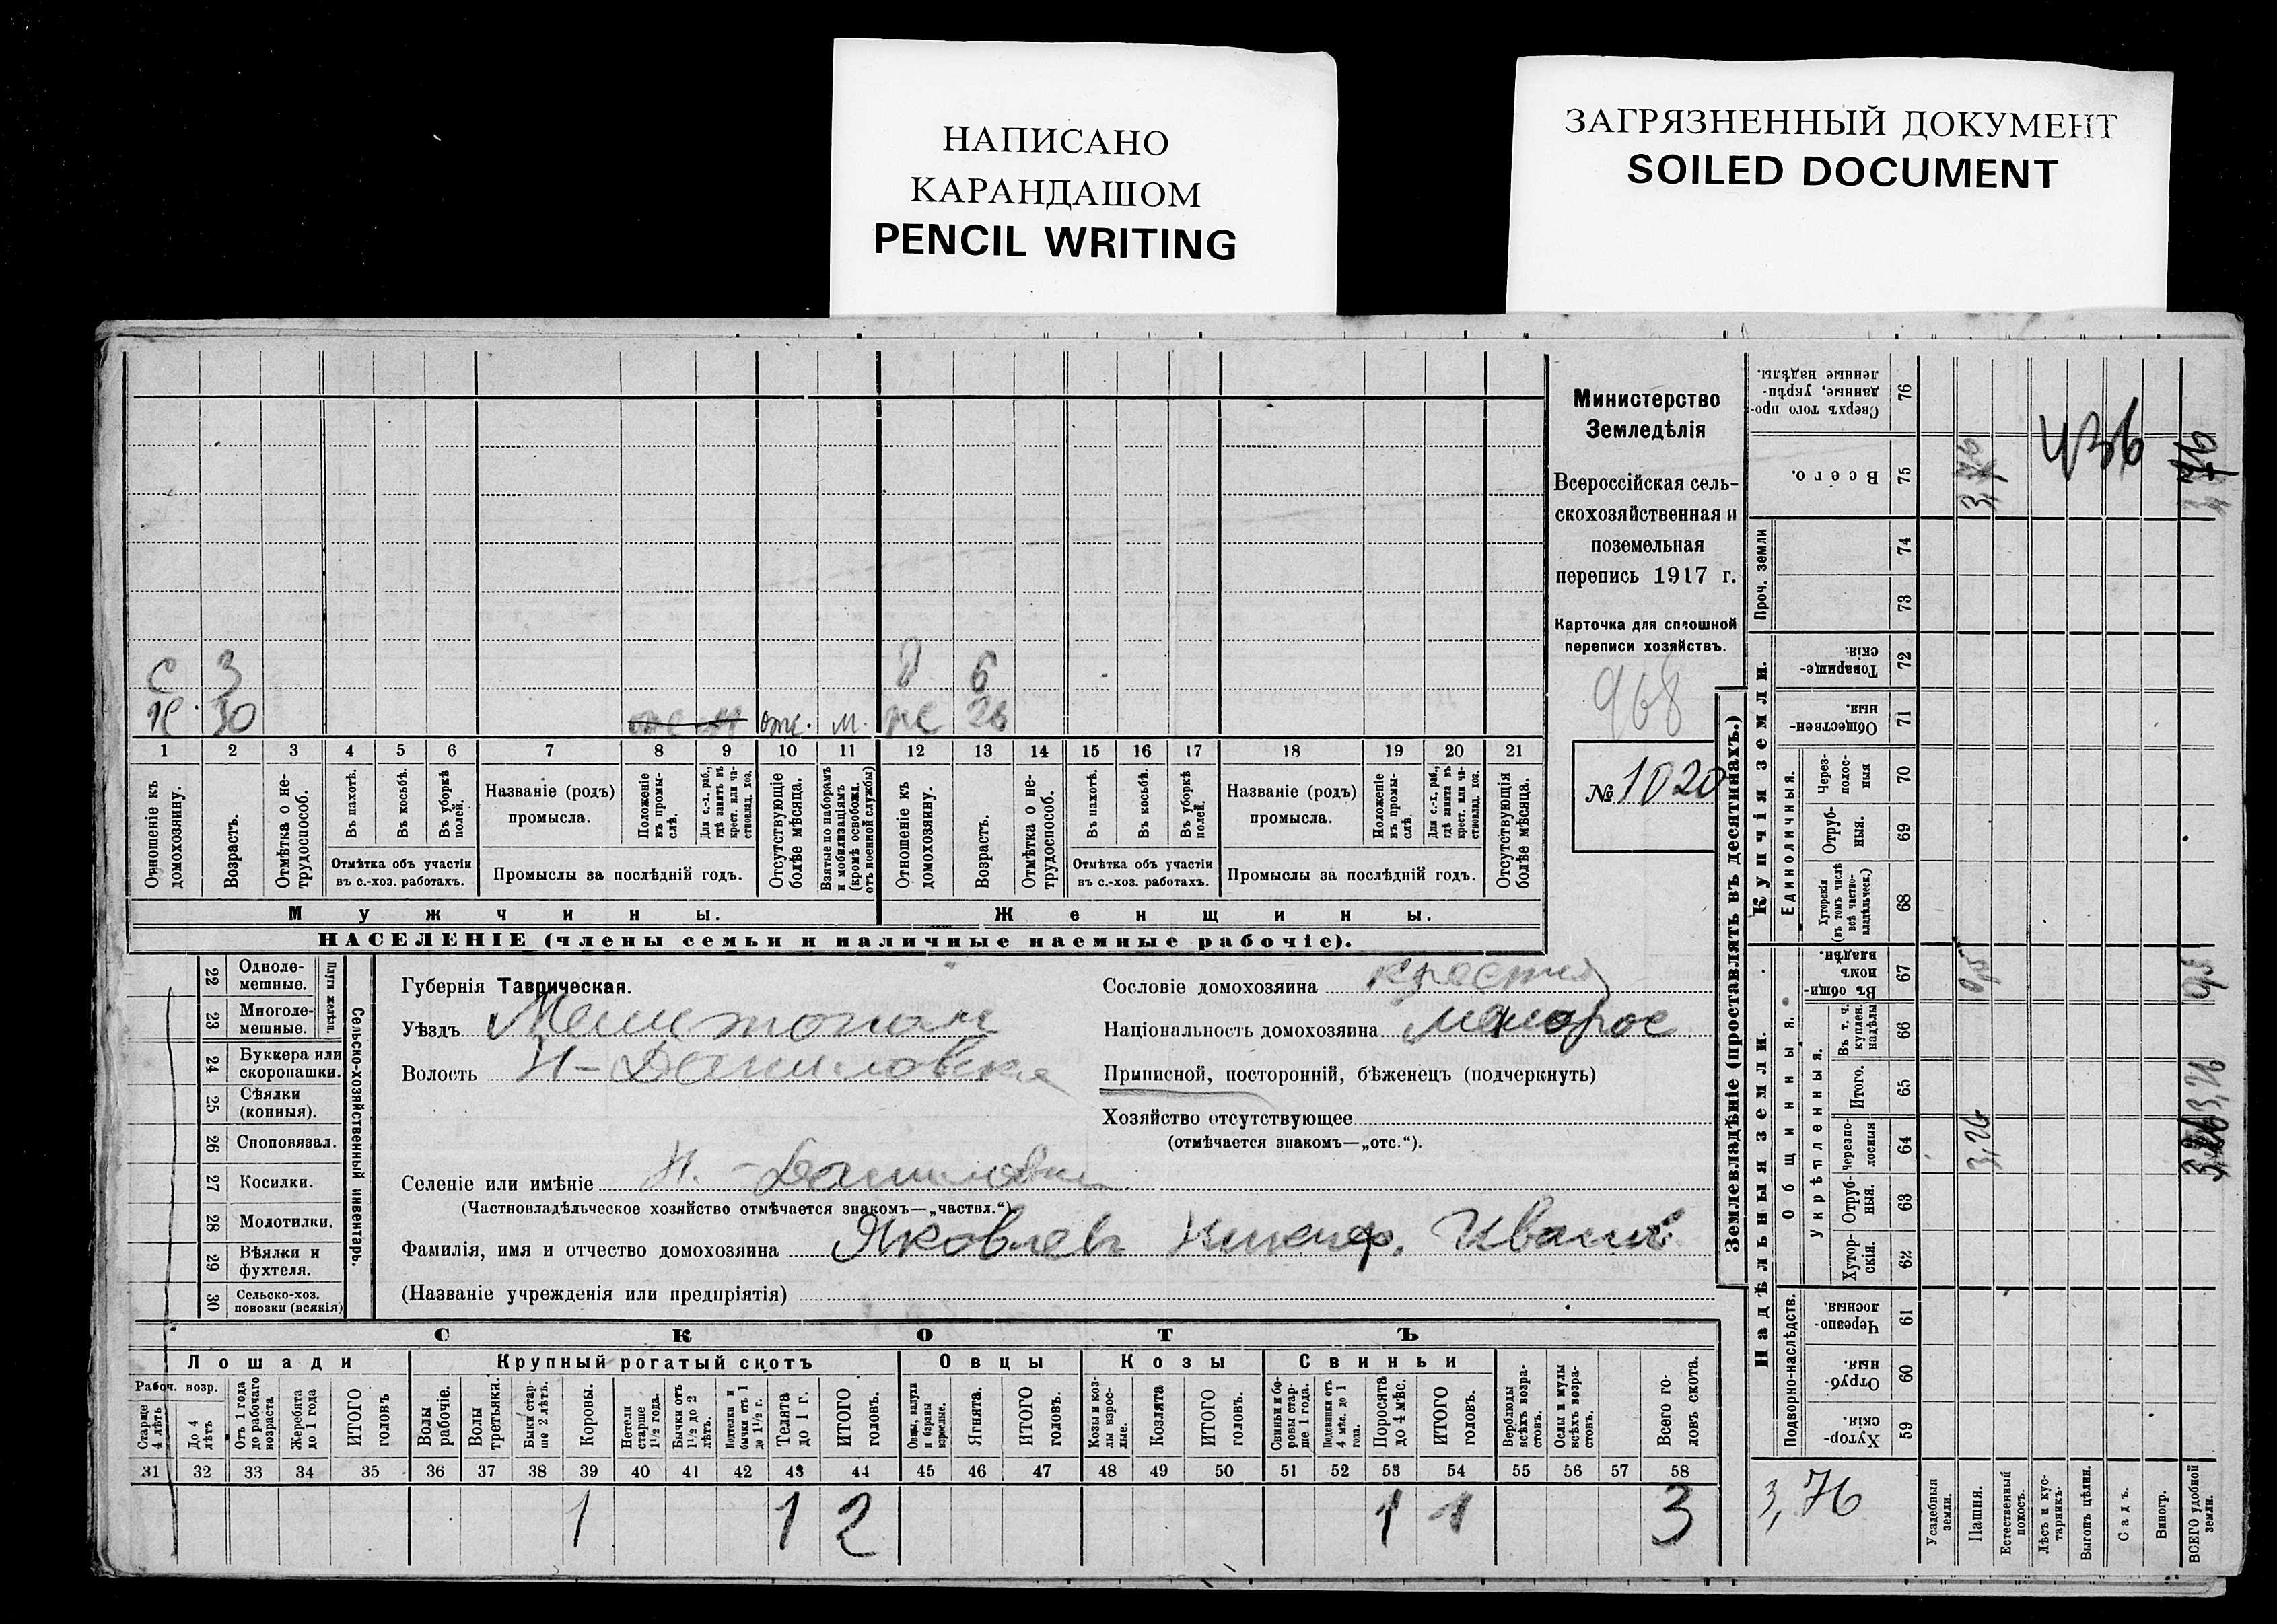 НАПИСАНО
КАРАНДАШОМ
PENCIL WRITING
ЗАГРЯЗНЕННЫЙ ДОКУМЕНТ
SOILED DOCUMENT
Министерство
Земледѣлія
Всероссійская сель-
скохозяйственная и
поземельная
перепись 1917 г.
Карточка для сплошной
переписи хозяйствъ.
968
№ 1020
С 3 6
30 отс. м. 26
1 2 3 4 5 6 7 8 9 10 11 12 13 14 15 16 17 18 19 20 21
Отношеніе къ домохозяину.
Возрастъ.
Отмѣтка о не-трудоспособ.
Въ пахотѣ.
Въ косьбѣ.
Въ уборкѣ полей.
Отмѣтка объ участіи
въ с.-хоз. работахъ.
Названіе (родъ)
промысла.
Положеніе въ промы-слѣ.
Для с.-х. раб., гдѣ занятъ въ крест. или ча-стновлад. хоз.
Промыслы за послѣдній годъ.
Отсутствующіе болѣе мѣсяца.
Взятые по наборамъ и мобилизаціямъ (кромѣ освобожд. отъ военной службы)
Отношеніе къ домохозяину.
Возрастъ.
Отмѣтка о не-трудоспособ.
Въ пахотѣ.
Въ косьбѣ.
Въ уборкѣ полей.
Отмѣтка объ участіи
въ с.-хоз. работахъ.
Названіе (родъ)
промысла.
Положеніе въ промы-слѣ.
Для с.-х. раб., гдѣ занята въ крест. или ча-стновлад. хоз.
Промыслы за послѣдній годъ.
Отсутствующія болѣе мѣсяца.
Мужчины. Женщины.
НАСЕЛЕНІЕ (члены семьи и наличные наемные рабочіе).
Сельско-хозяйственный инвентарь.
Плуги желѣзн.
22 Одноле-мешные.
23 Многоле-мешные.
24 Буккера или скоропашки.
25 Сѣялки (конныя).
26 Сноповязал.
27 Косилки.
28 Молотилки.
29 Вѣялки и фухтеля.
30 Сельско-хоз. повозки (всякія)
Губернія Таврическая.
Уѣздъ
Волость Н-Даниловская
Сословіе домохозяина
Національность домохозяина малорос
Приписной, посторонній, бѣженецъ (подчеркнуть)
Хозяйство отсутствующее
(отмѣчается знакомъ—„отс.“).
Селеніе или имѣніе Н.-Даниловка
(Частновладѣльческое хозяйство отмѣчается знакомъ—„частвл.“).
Фамилія, имя и отчество домохозяина Яковлевъ Никиф. Иванов.
(Названіе учрежденія или предпріятія)
СКОТЪ
Лошади Крупный рогатый скотъ Овцы Козы Свиньи
Рабоч. возр.
Старше 4 лѣтъ
До 4 лѣтъ
Отъ 1 года до рабочаго возраста
Жеребята до 1 года
ИТОГО головъ
Волы рабочіе.
Волы третьяки.
Быки стар-ше 2 лѣтъ.
Коровы.
Нетели старше 1½ года.
Бычки отъ 1½ до 2 лѣтъ.
Подтелки и бычки отъ 1 до 1½ г.
Телята до 1 г.
ИТОГО головъ.
Овцы, валухи и бараны взрослые.
Ягнята.
ИТОГО головъ.
Козы и коз-лы взрос-лые.
Козлята
ИТОГО головъ.
Свиньи и бо-ровы стар-ше 1 года.
Подсвинки отъ 4 мѣс. до 1 года.
Поросята до 4 мѣс.
ИТОГО головъ.
Верблюды всѣхъ возра-стовъ.
Ослы и мулы всѣхъ возра-стовъ.
Всего го-ловъ скота.
31 32 33 34 35 36 37 38 39 40 41 42 43 44 45 46 47 48 49 50 51 52 53 54 55 56 57 58
1 1 2 1 1 3
Землевладѣніе (проставлять въ десятинахъ.)
Надѣльныя земли. Купчія земли.
Подворно-наслѣдств. Общинныя. Единоличныя. Проч. земли
Укрѣпленныя.
Хутор-скія. 59
Отруб-ныя. 60
Черезпо-лосныя. 61
Хутор-скія. 62
Отруб-ныя. 63
Черезпо-лосныя 64
Итого. 65
Въ т. ч. куплен. надѣлы 66
Въ общи-номъ владѣн. 67
Хуторскія (въ томъ числѣ всѣ частно-владѣльческ.) 68
Отруб-ныя. 69
Через-полос-ныя 70
Обществен-ныя. 71
Товарище-скія. 72
73
74
Всего. 75
Сверхъ того про-данные, укрѣп-ленные надѣлы. 76
3,76
Усадебныя земли.
Пашня.
Естественный покосъ.
Лѣсъ и кус-тарникъ.
Выгонъ цѣлин.
Садъ.
Виногр.
ВСЕГО удобной земли.
3,26 0,5
436
3,26 0,5